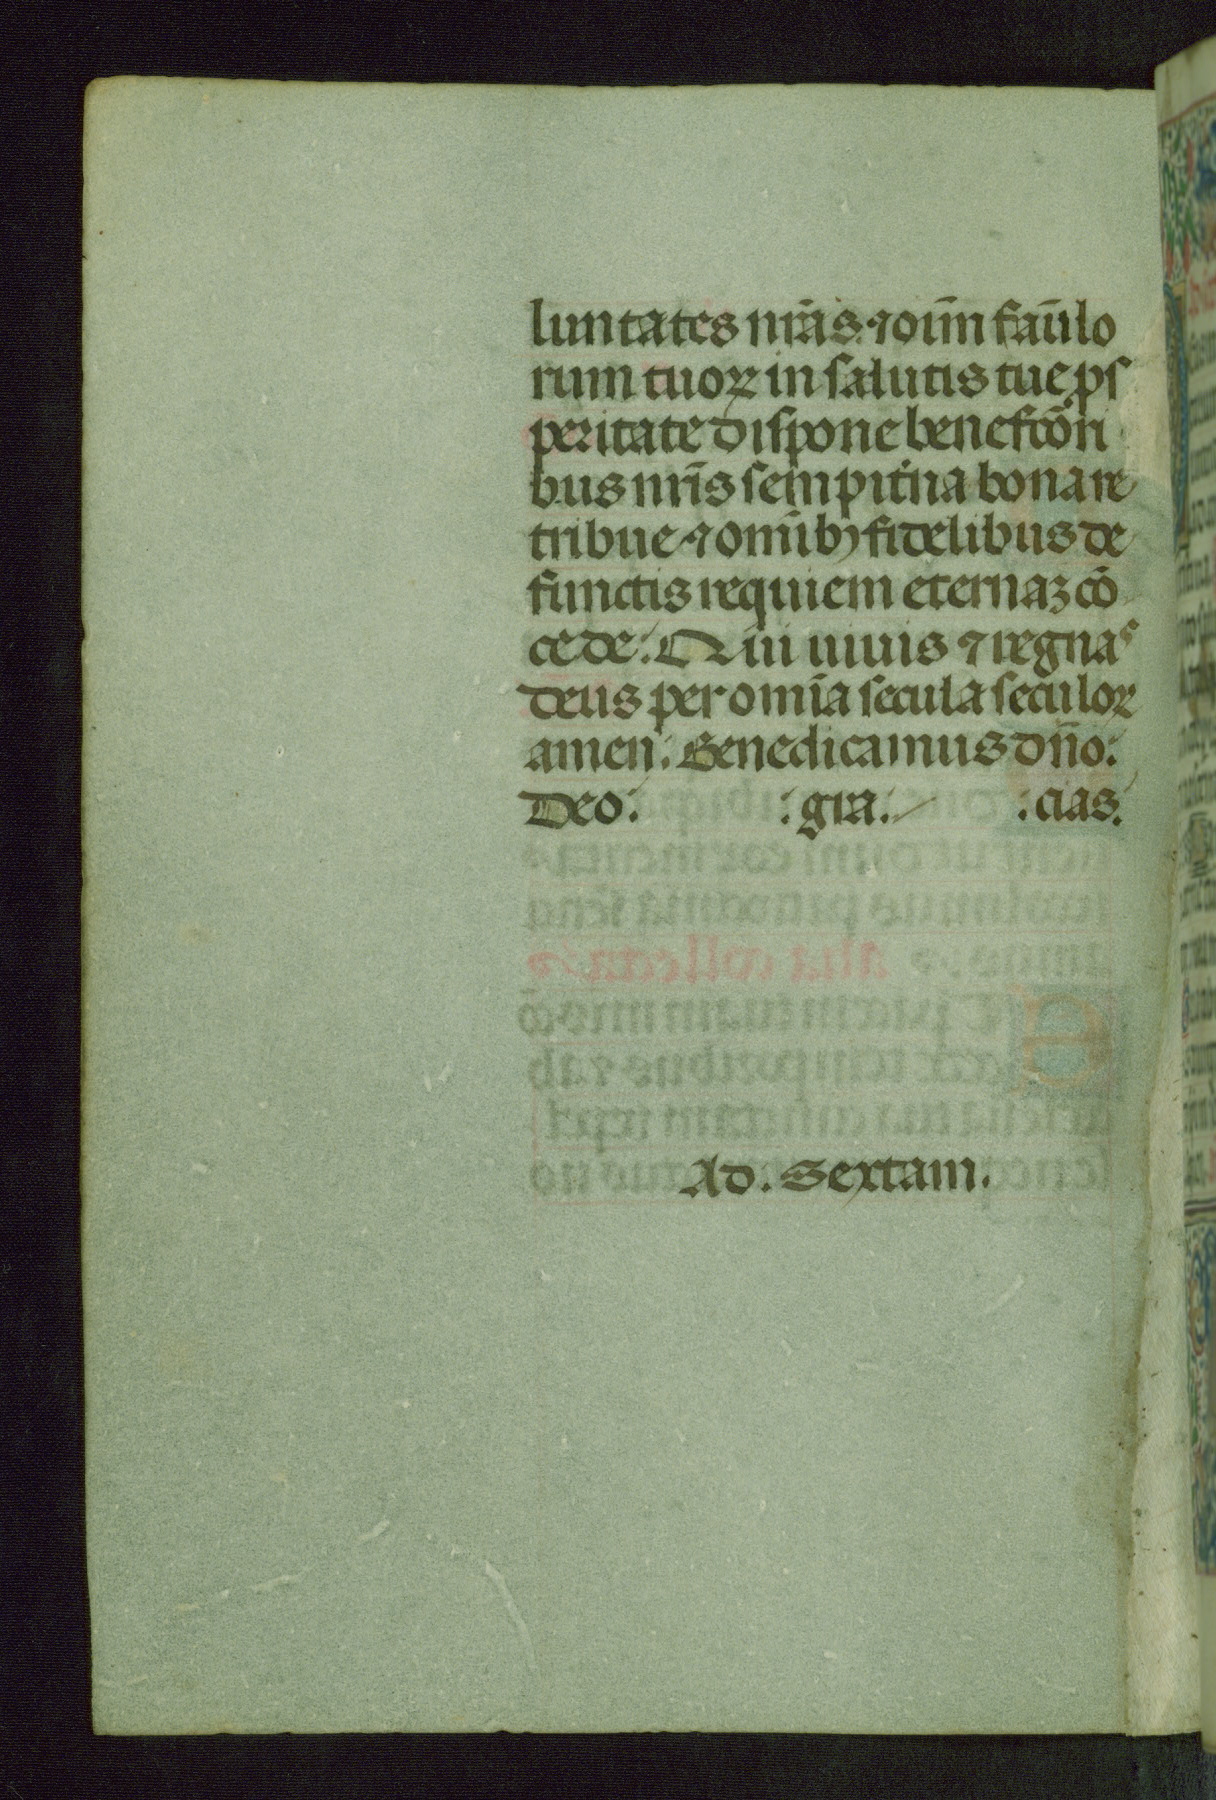 luntates nr̄as. ⁊ oīm faūlo
rum tuoꝝ in salutis tue ꝓs
peritate dispone benefc̄ori
bus nr̄is sempit̄na bona re
tribue ⁊ omībꝫ fidelibus de
functis requiem eternaꝫ cō
cede. Qui uiuis ⁊ regnas
deus per omīa secula seculoꝝ
amen. Benedicamus dn̄o.
Deo. gra. cias.
Ad. Sextam.